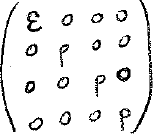 ε 0 0 0
0 p 0 0
0 0 p 0
0 0 0 p